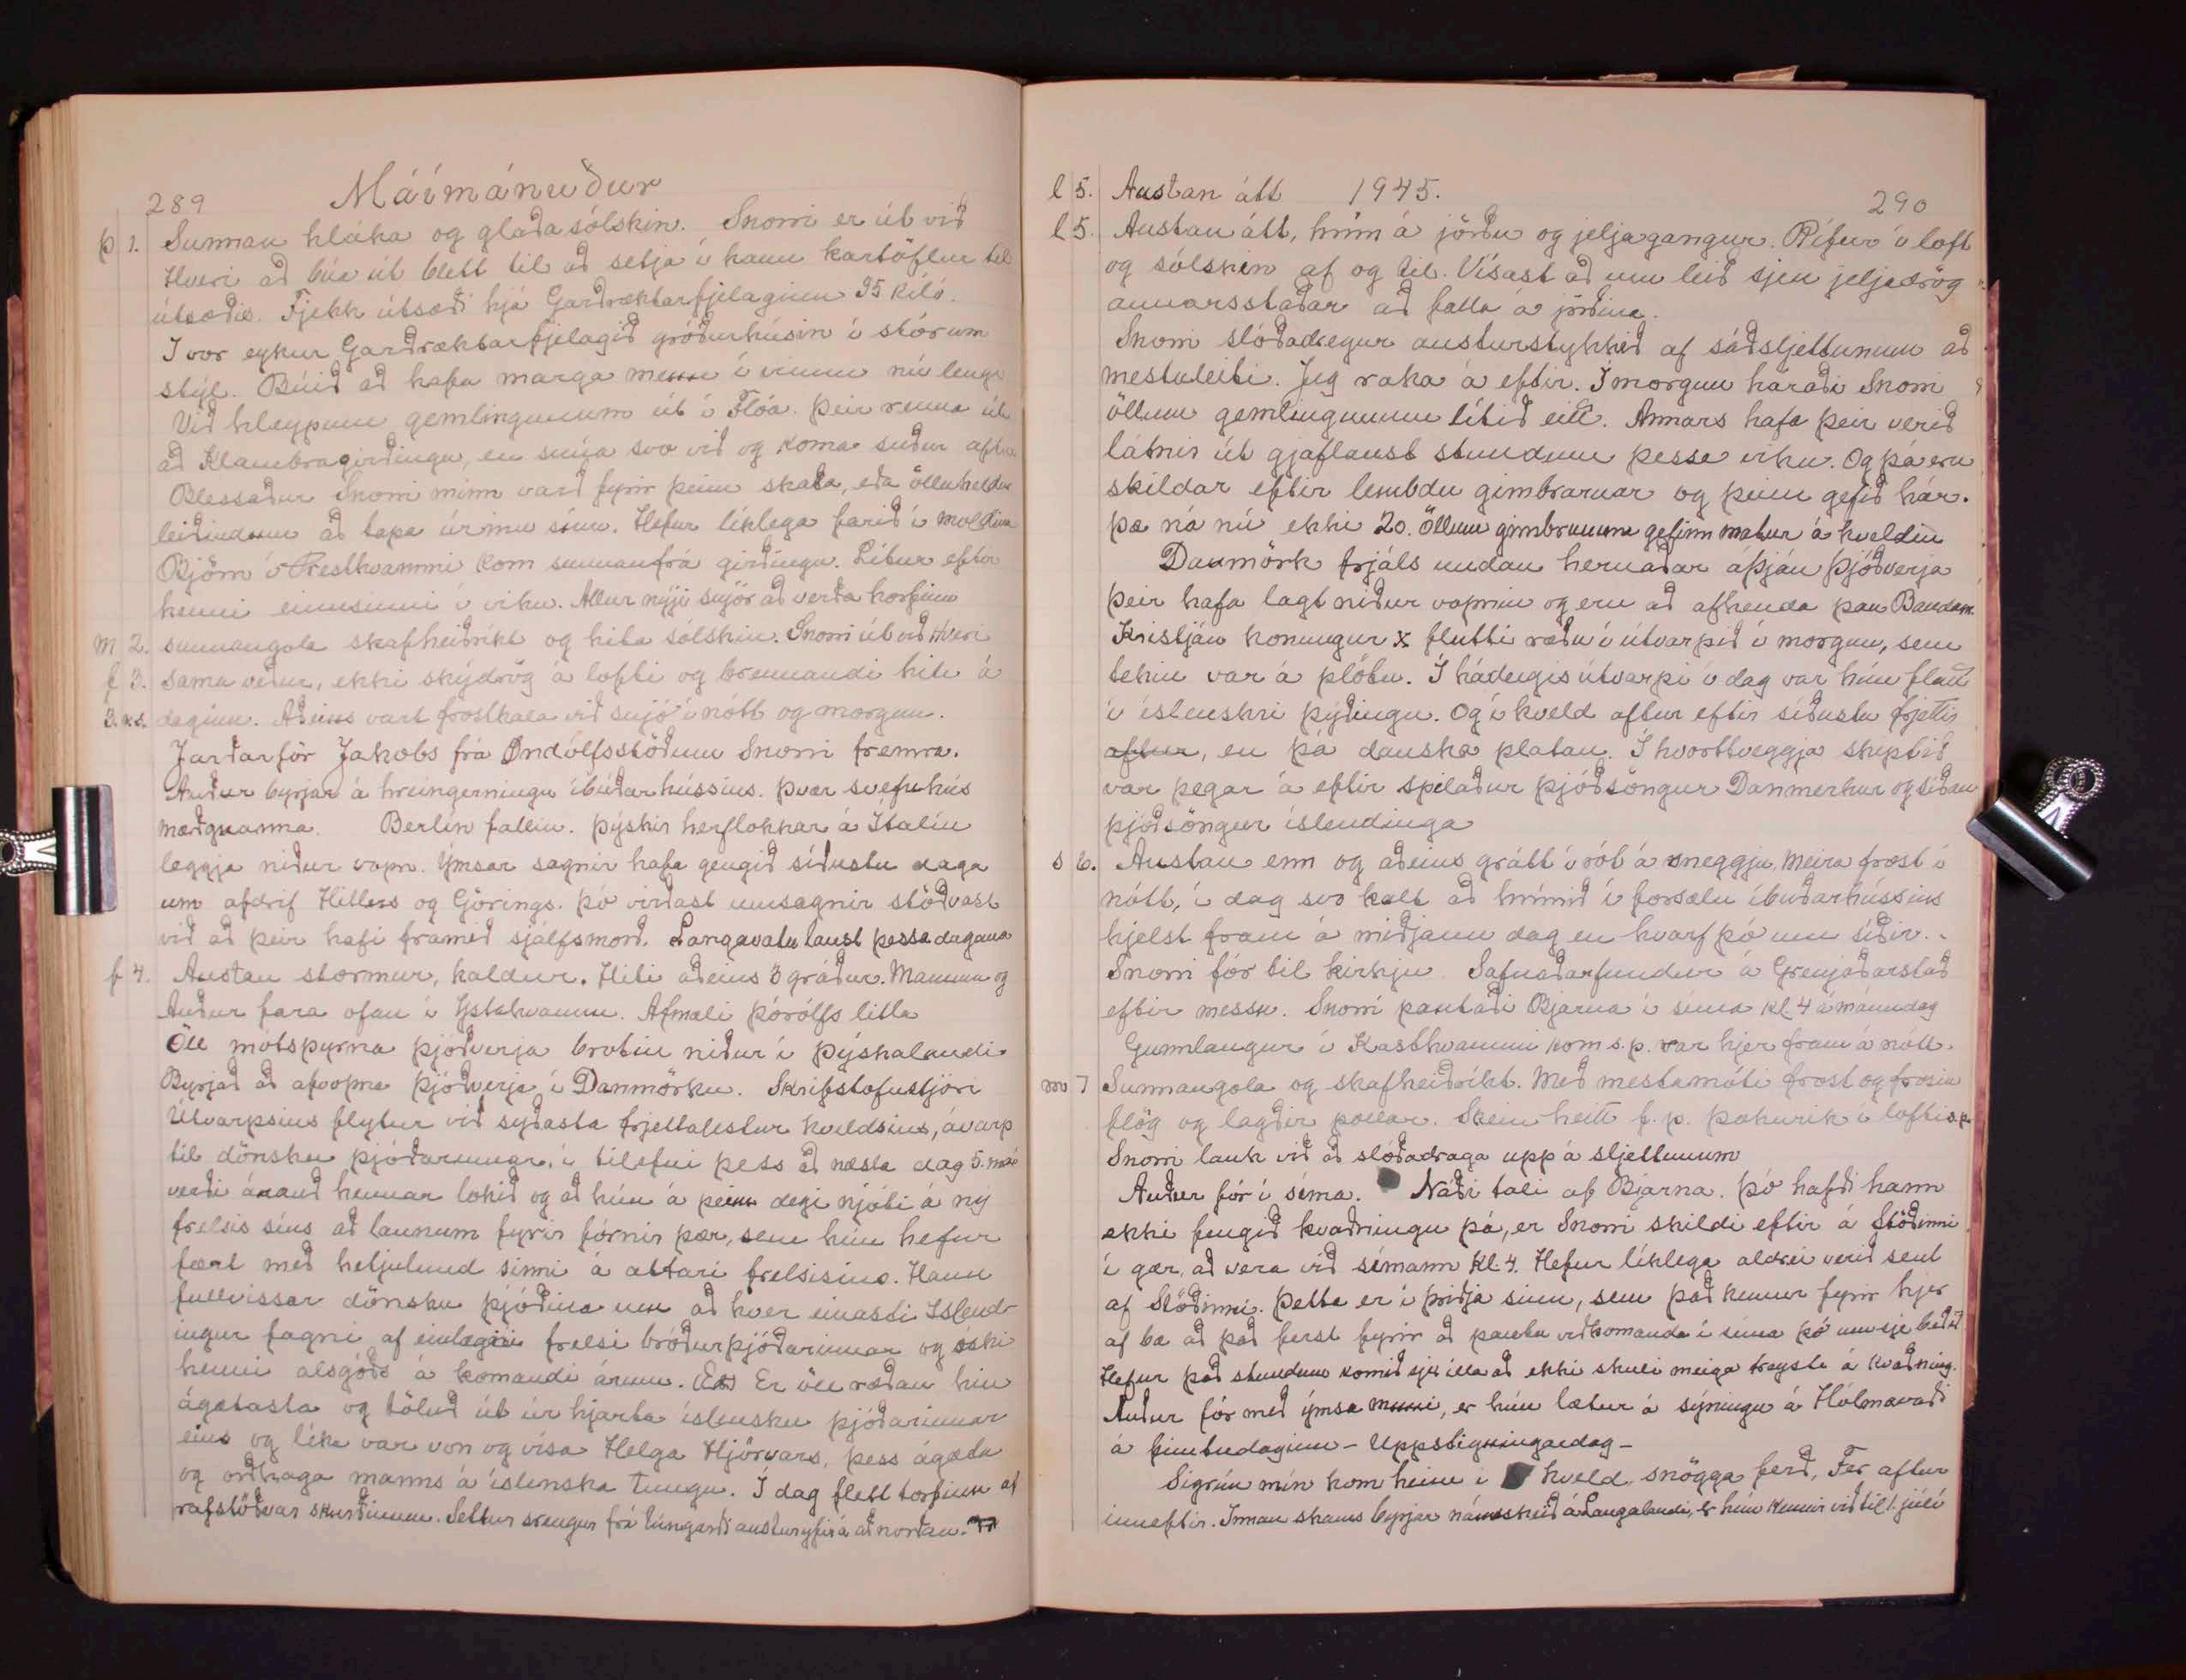 289 Máímánuður
þ 1. Sunnan hláka og glaða sólskin. Snorri er út við
Hveri að búa út blett til að setja í hann kartöflur til
útsæðis. Fjekk útsæði hjá Garðræktarfjelaginu 35 kíló.
Í vor eykur Garðræktarfjelagið gróðurhúsin í stórum
stýl. Búið að hafa marga menn í vinnu nú lengi
Við hleypum gemlingunum út í Flóa. Þeir renna út
að Klambragirðingu, en snúa svo við og koma suður aftur
Blessaður Snorri minn varð fyrir þeim skaða, eða öllu heldur
leiðindum að tapa úrinu sínu. Hefur líklega farið í moldina
Björn í Presthvammi kom sunnanfrá girðingu. Lítur eftir
henni einusinni í viku. Allur nýji snjór að verða horfinn
m 2. sunnangola skafheiðríkt og hita sólskin. Snorri út við Hveri
f 3. sama veður, ekki skýdrög á lofti og brennandi hiti á
3. v.s. daginn. Aðeins vart frostkala við snjó í nótt og morgun.
Jarðarför Jakobs frá Öndólfsstöðum Snorri fremra.
Auður byrjar á hreingerningu íbúðarhússins. Þvær svefnhús
mæðgnanna. Berlín fallin. Þýskir herflokkar á Ítalíu
leggja niður vopn. Ýmsar sagnir hafa gengið síðustu daga
um afdrif Hitlers og Görings. Þó virðast umsagnir stöðvast
við að þeir hafi framið sjálfsmorð. Langavatn laust þessa dagana
f 4. Austan stormur, kaldur. Hiti aðeins 3 gráður. Mamma og
Auður fara ofan í Ystahvamm. Afmæli Þórólfs litla
Öll mótspyrna þjóðverja brotin niður í Þýskalandi.
Byrjað að afvopna þjóðverja í Danmörku. Skrifstofustjóri
Útvarpsins flytur við syðasta frjettalestur kveldsins, ávarp
til dönsku þjóðarinnar, í tilefni þess að næsta dag 5. maí
verði ánauð hennar lokið og að hún á þeim degi njóti á ný
frelsis síns að launum fyrir fórnir þær, sem hún hefur
fært með hetjulund sinni á altari frelsisins. Hann
fullvissar dönsku þjóðina um að hver einasti Íslend-
ingur fagni af einlægni frelsi bróðurþjóðarinnar og óski
henni alsgóðs á komandi árum. Er öll ræðan hin
ágætasta og töluð út úr hjarta íslensku þjóðarinnar
eins og líka var von og vísa Helga Hjörvars, þess ágæta
og orðhaga manns á íslenska tungu. Í dag flett torfinu af
rafstöðvar skurðinum. Settur strengur frá túngarði austuryfir á að norðan.
l 5. Austan átt 1945. 290
l 5. Austan átt, hrím á jörðu og jeljagangur. Rífur í loft
og sólskin af og til. Vísast að um leið sjeu jeljadrög
annarsstaðar að falla á jörðina.
Snorri slóðadregur austurstykkið af sáðsljettunum að
mestuleiti. Jeg raka á eftir. Í morgun háraði Snorri
öllum gemlingunum lítið eitt. Annars hafa þeir verið
látnir út gjaflaust stundum þessa viku. Og þá eru
skildar eftir lembdu gimbrarnar og þeim gefið hár.
þæ ná nú ekki 20. Öllum gimbrunum gefinn matur á kveldin
Danmörk frjáls undan hernaðar áþján Þjóðverja
Þeir hafa lagt niður vopnin og eru að afhenda þau Bandam.
Kristján konungur X flutti ræðu í útvarpið í morgun, sem
tekin var á plötu. Í hádegisútvarpi í dag var hún flutt
í íslenskri þýðingu. Og í kveld aftur eftir síðustu frjettir
aftur, en þá danska platan. Í hvorttveggja skiptið
var þegar á eftir spilaður þjóðsöngur Danmerkur og síðan
þjóðsöngur íslendinga
s 6. Austan enn og aðeins grátt í rót á sneggju. Meira frost í
nótt, í dag svo kalt að hrímið í forsælu íbúðarhússins
hjelst fram á miðjann dag en hvarf þó um síðir.
Snorri fór til kirkju. Safnaðarfundur á Grenjaðarstað
eftir messu. Snorri pantaði Bjarna í síma kl. 4 á mánudag
Gunnlaugur í Kasthvammi kom s.p. var hjer fram á nótt.
m 7 Sunnangola og skafheiðríkt. Með mestamóti frost og frosin
flög og lagðir pollar. Skein heitt f. p. þokurik í lofti s.p.
Snorri lauk við að slóðadraga upp á sljettunum
Auður fór í síma. Náði tali af Bjarna. Þó hafði hann
ekki fengið kvaðningu þá, er Snorri skildi eftir á Stöðinni
í gær, að vera við símann kl. 4. Hefur líklega aldrei verið sent
af Stöðinni. Þetta er í þriðja sinn, sem það kemur fyrir hjer
af bæ að það ferst fyrir að panta viðkomanda í síma þó um sje beðið
Hefur það stundum komið sjer illa að ekki skuli meiga treysta á kvaðning.
Auður fór með ýmsa muni, er hún lætur á sýningu á Hólmavaði
á fimtudaginn - Uppstigningardag -
Sigrún mín kom heim í kveld snögga ferð, Fer aftur
inneftir. Innan skams byrjar námsskeið á Laugalandi, er hún kennir við til 1. júlí